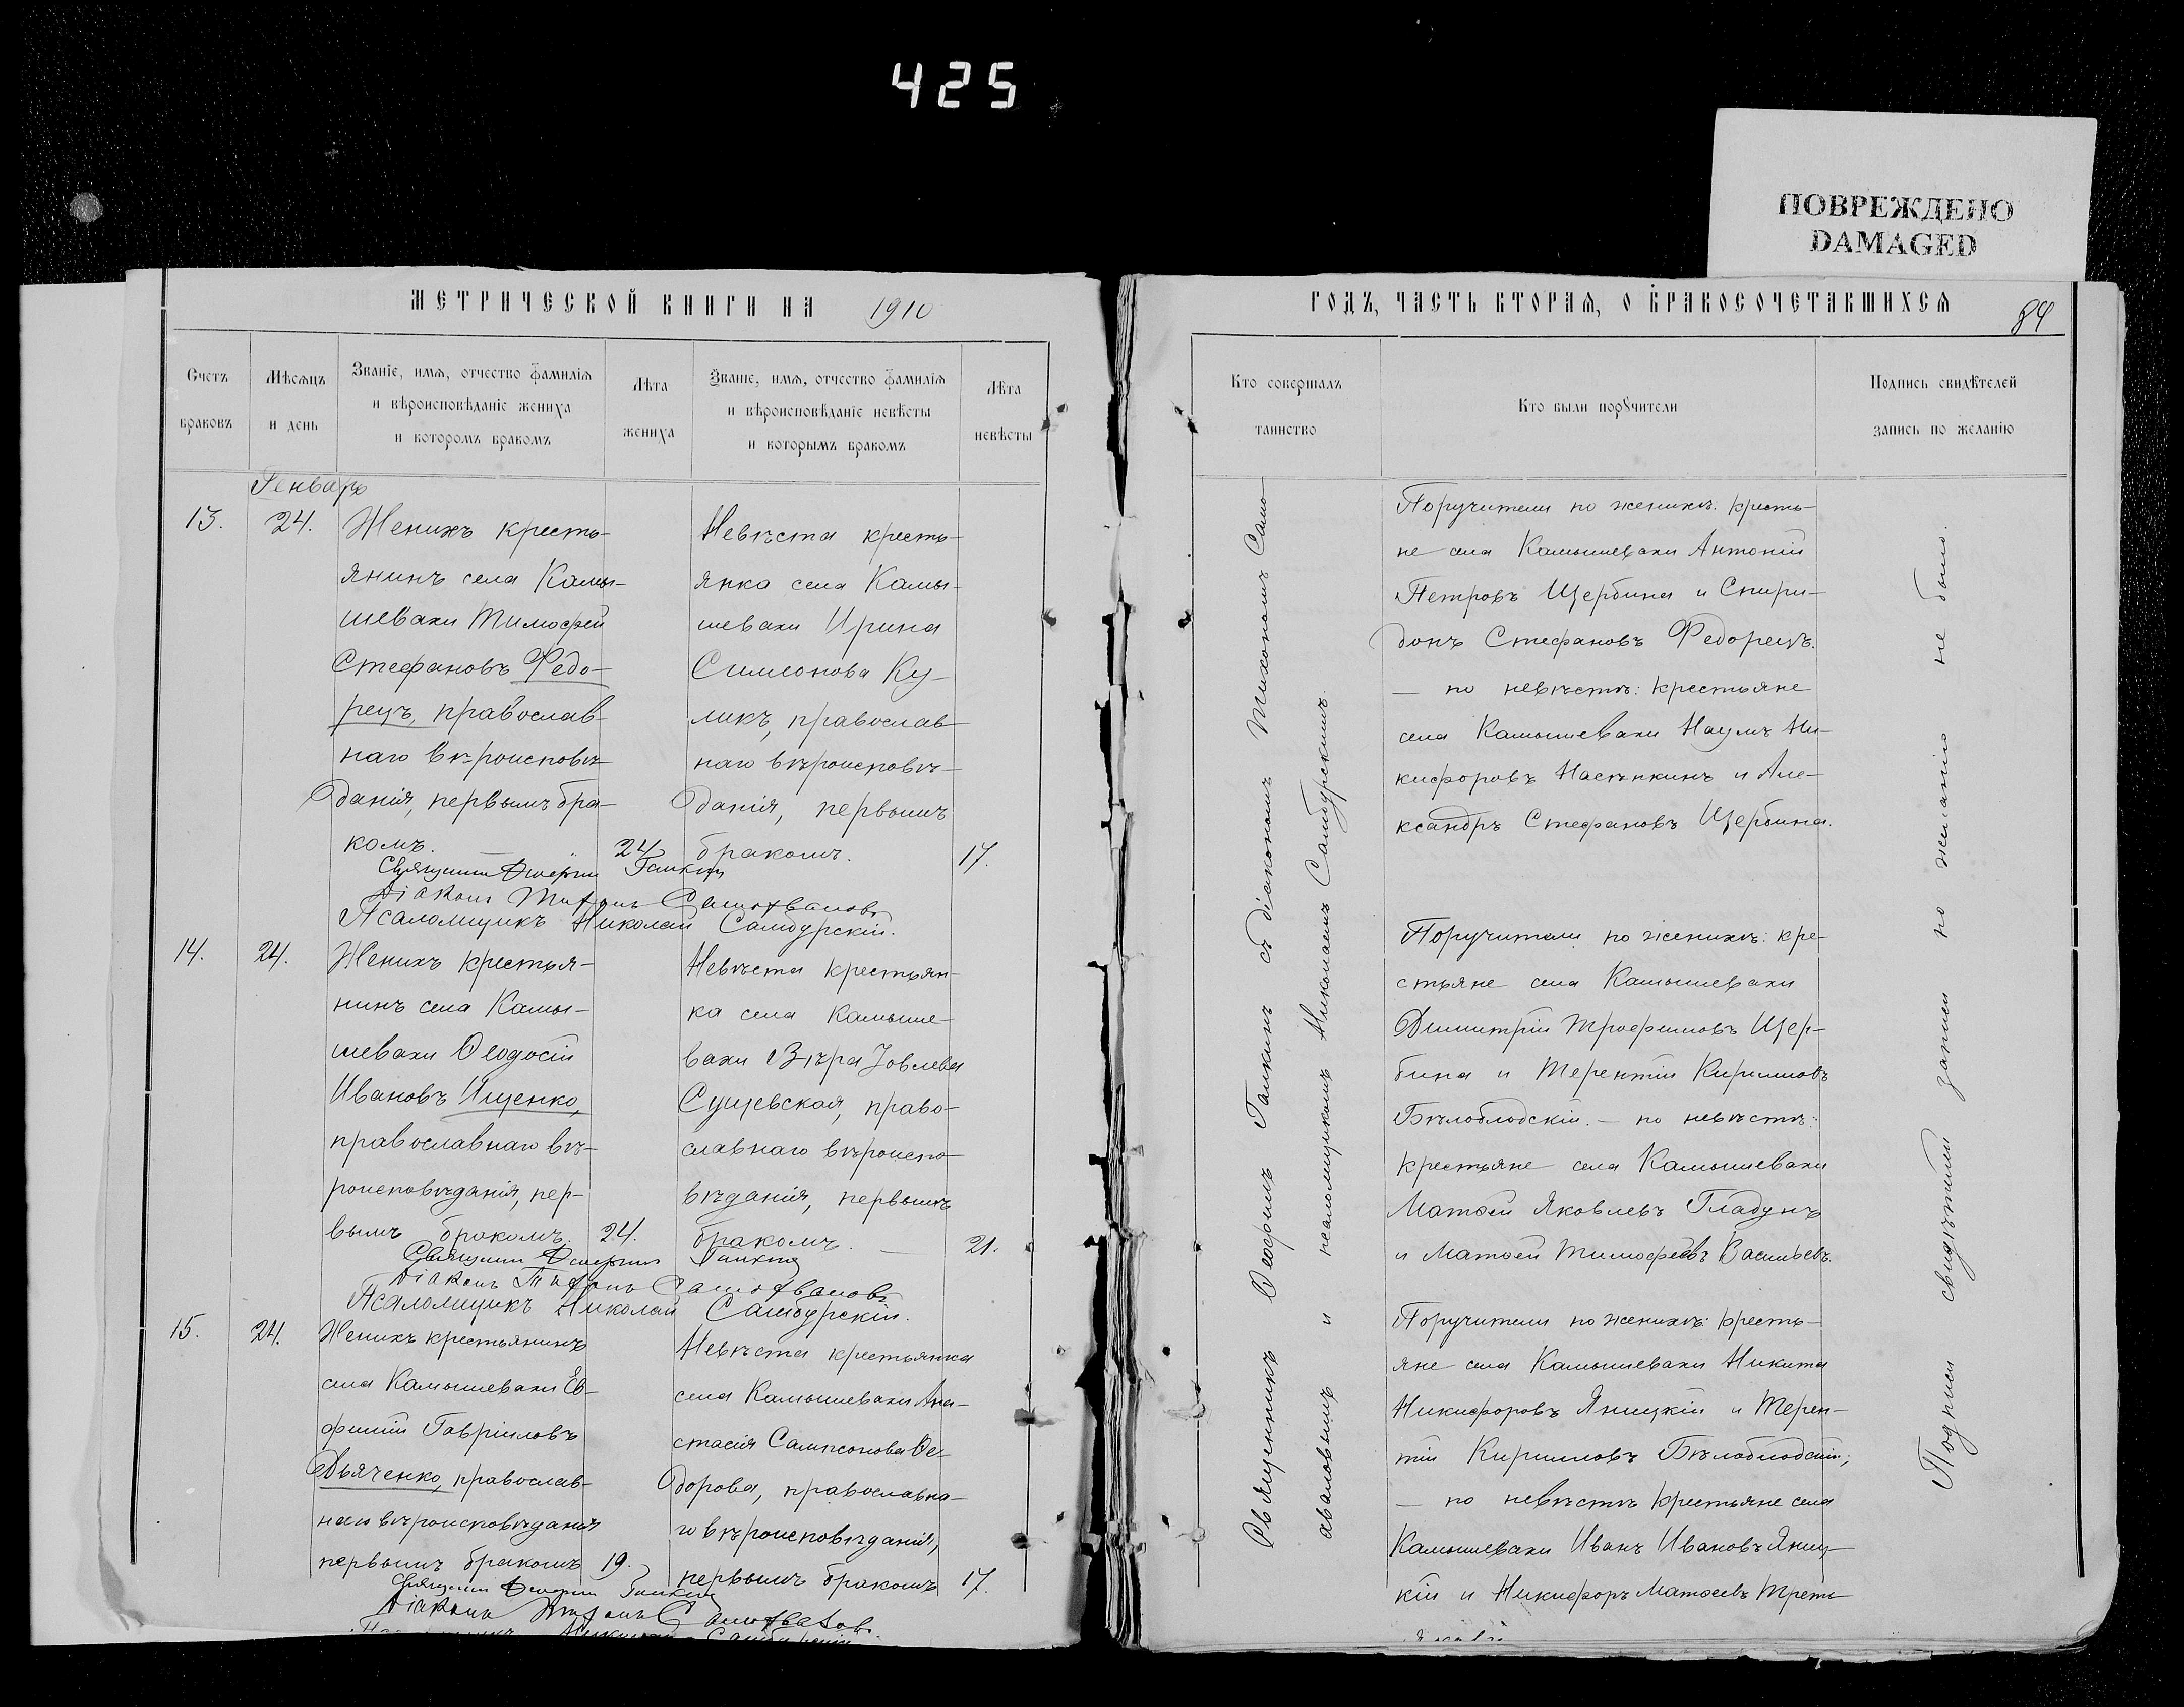 425
ПОВРЕЖДЕНО
DAMAGED
МЕТРИЧЕСКОЙ КНИГИ НА 1910
Счетъ
браковъ
Мѣсяцъ
и день
Званіе, имя, отчество фамилія
и вѣроисповѣданіе жениха
и которомъ бракомъ
Лѣта
жениха
Званіе, имя, отчество фамилія
и вѣроисповѣданіе невѣсты
и которымъ бракомъ
Лѣта
невѣсты
Генварь
13.
24.
Женихъ кресть-
янинъ села Камы-
шевахи Тимофей
Стефановъ Федо-
рецъ, православ-
наго вѣроисповѣ-
данія, первымъ бра-
комъ.
24
Невѣста кресть-
янка села Камы-
шевахи Ирина
Симеонова Ку-
ликъ, православ-
наго вѣроисповѣ-
данія, первымъ
бракомъ.
17.
Священникъ Ѳеофилъ Галкинъ
Діаконъ Тихонъ Самохваловъ
Псаломщикъ Николай Самбурскій.
14.
24.
Женихъ крестья-
нинъ села Камы-
шевахи Ѳеодосій
Ивановъ Ищенко,
православнаго вѣ-
роисповѣданія, пер-
вымъ бракомъ.
24.
Невѣста крестьян-
ка села Камыше-
вахи Вѣра Іовлева
Сущевская, право-
славнаго вѣроиспо-
вѣданія, первымъ
бракомъ. —
21.
Священникъ Ѳеофилъ Галкинъ
Діаконъ Тихонъ Самохваловъ
Псаломщикъ Николай Самбурскій.
15.
24.
Женихъ крестьянинъ
села Камышевахи Ев-
фимій Гавріиловъ
Дьяченко, православ-
наго вѣроисповѣданія
первымъ бракомъ
19.
Невѣста крестьянка
села Камышевахи Ана-
стасія Сампсонова Ѳе-
дорова, православна-
го вѣроисповѣданія,
первымъ бракомъ
17.
Священникъ Ѳеофилъ Галкинъ
Діаконъ Тихонъ Самохваловъ
Псаломщикъ Николай Самбурскій
ГОДЪ, ЧАСТЬ ВТОРАЯ, О БРАКОСОЧЕТАВШИХСЯ
84
Кто совершалъ
таинство
Кто были поручители
Подпись свидѣтелей
запись по желанію
Священникъ Ѳеофилъ Галкинъ съ діакономъ Тихономъ Само-
хваловымъ и псаломщикомъ Николаемъ Самбурскимъ.
Поручители по женихѣ: кресть-
не села Камышевахи Антоній
Петровъ Щербина и Спири-
донъ Стефановъ Федорецъ.
— по невѣстѣ: крестьяне
села Камышевахи Наумъ Ни-
кифоровъ Насѣпкинъ и Але-
ксандръ Стефановъ Щербина.
Поручители по женихѣ: кре-
стьяне села Камышевахи
Димитрій Трофимовъ Щер-
бина и Терентій Кирилловъ
Бѣлоблодскій. — по невѣстѣ:
крестьяне села Камышевахи
Матѳей Яковлевъ Гладунъ
и Матѳей Тимофеевъ Васильевъ.
Поручители по женихѣ: кресть-
яне села Камышевахи Никита
Никифоровъ Яницкій и Терен-
тій Кирилловъ Бѣлоблодскій;
— по невѣстѣ крестьяне села
Камышевахи Иванъ Ивановъ Яниц-
кій и Никифоръ Матѳеевъ Треть-
яковъ.
Подписи свидѣтелей записи по желанію не было.